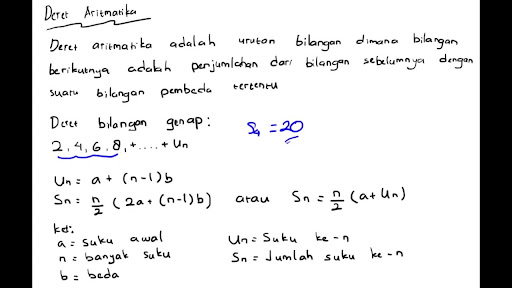 Deret Aritmatika
Deret aritmatika adalah urutan bilangan dimana bilangan
berikutnya adalah perjumlahan dari bilangan sebelumnya dengan
suatu bilangan pembeda tertentu
Deret bilangan genap:
S₄ = 20
2, 4, 6, 8, + .... + Un
Un = a + (n-1) b
Sn = n/2 (2a + (n-1) b) atau Sn = n/2 (a + Un)
ket:
a = suku awal Un = Suku ke-n
n = banyak suku Sn = Jumlah suku ke-n
b = beda